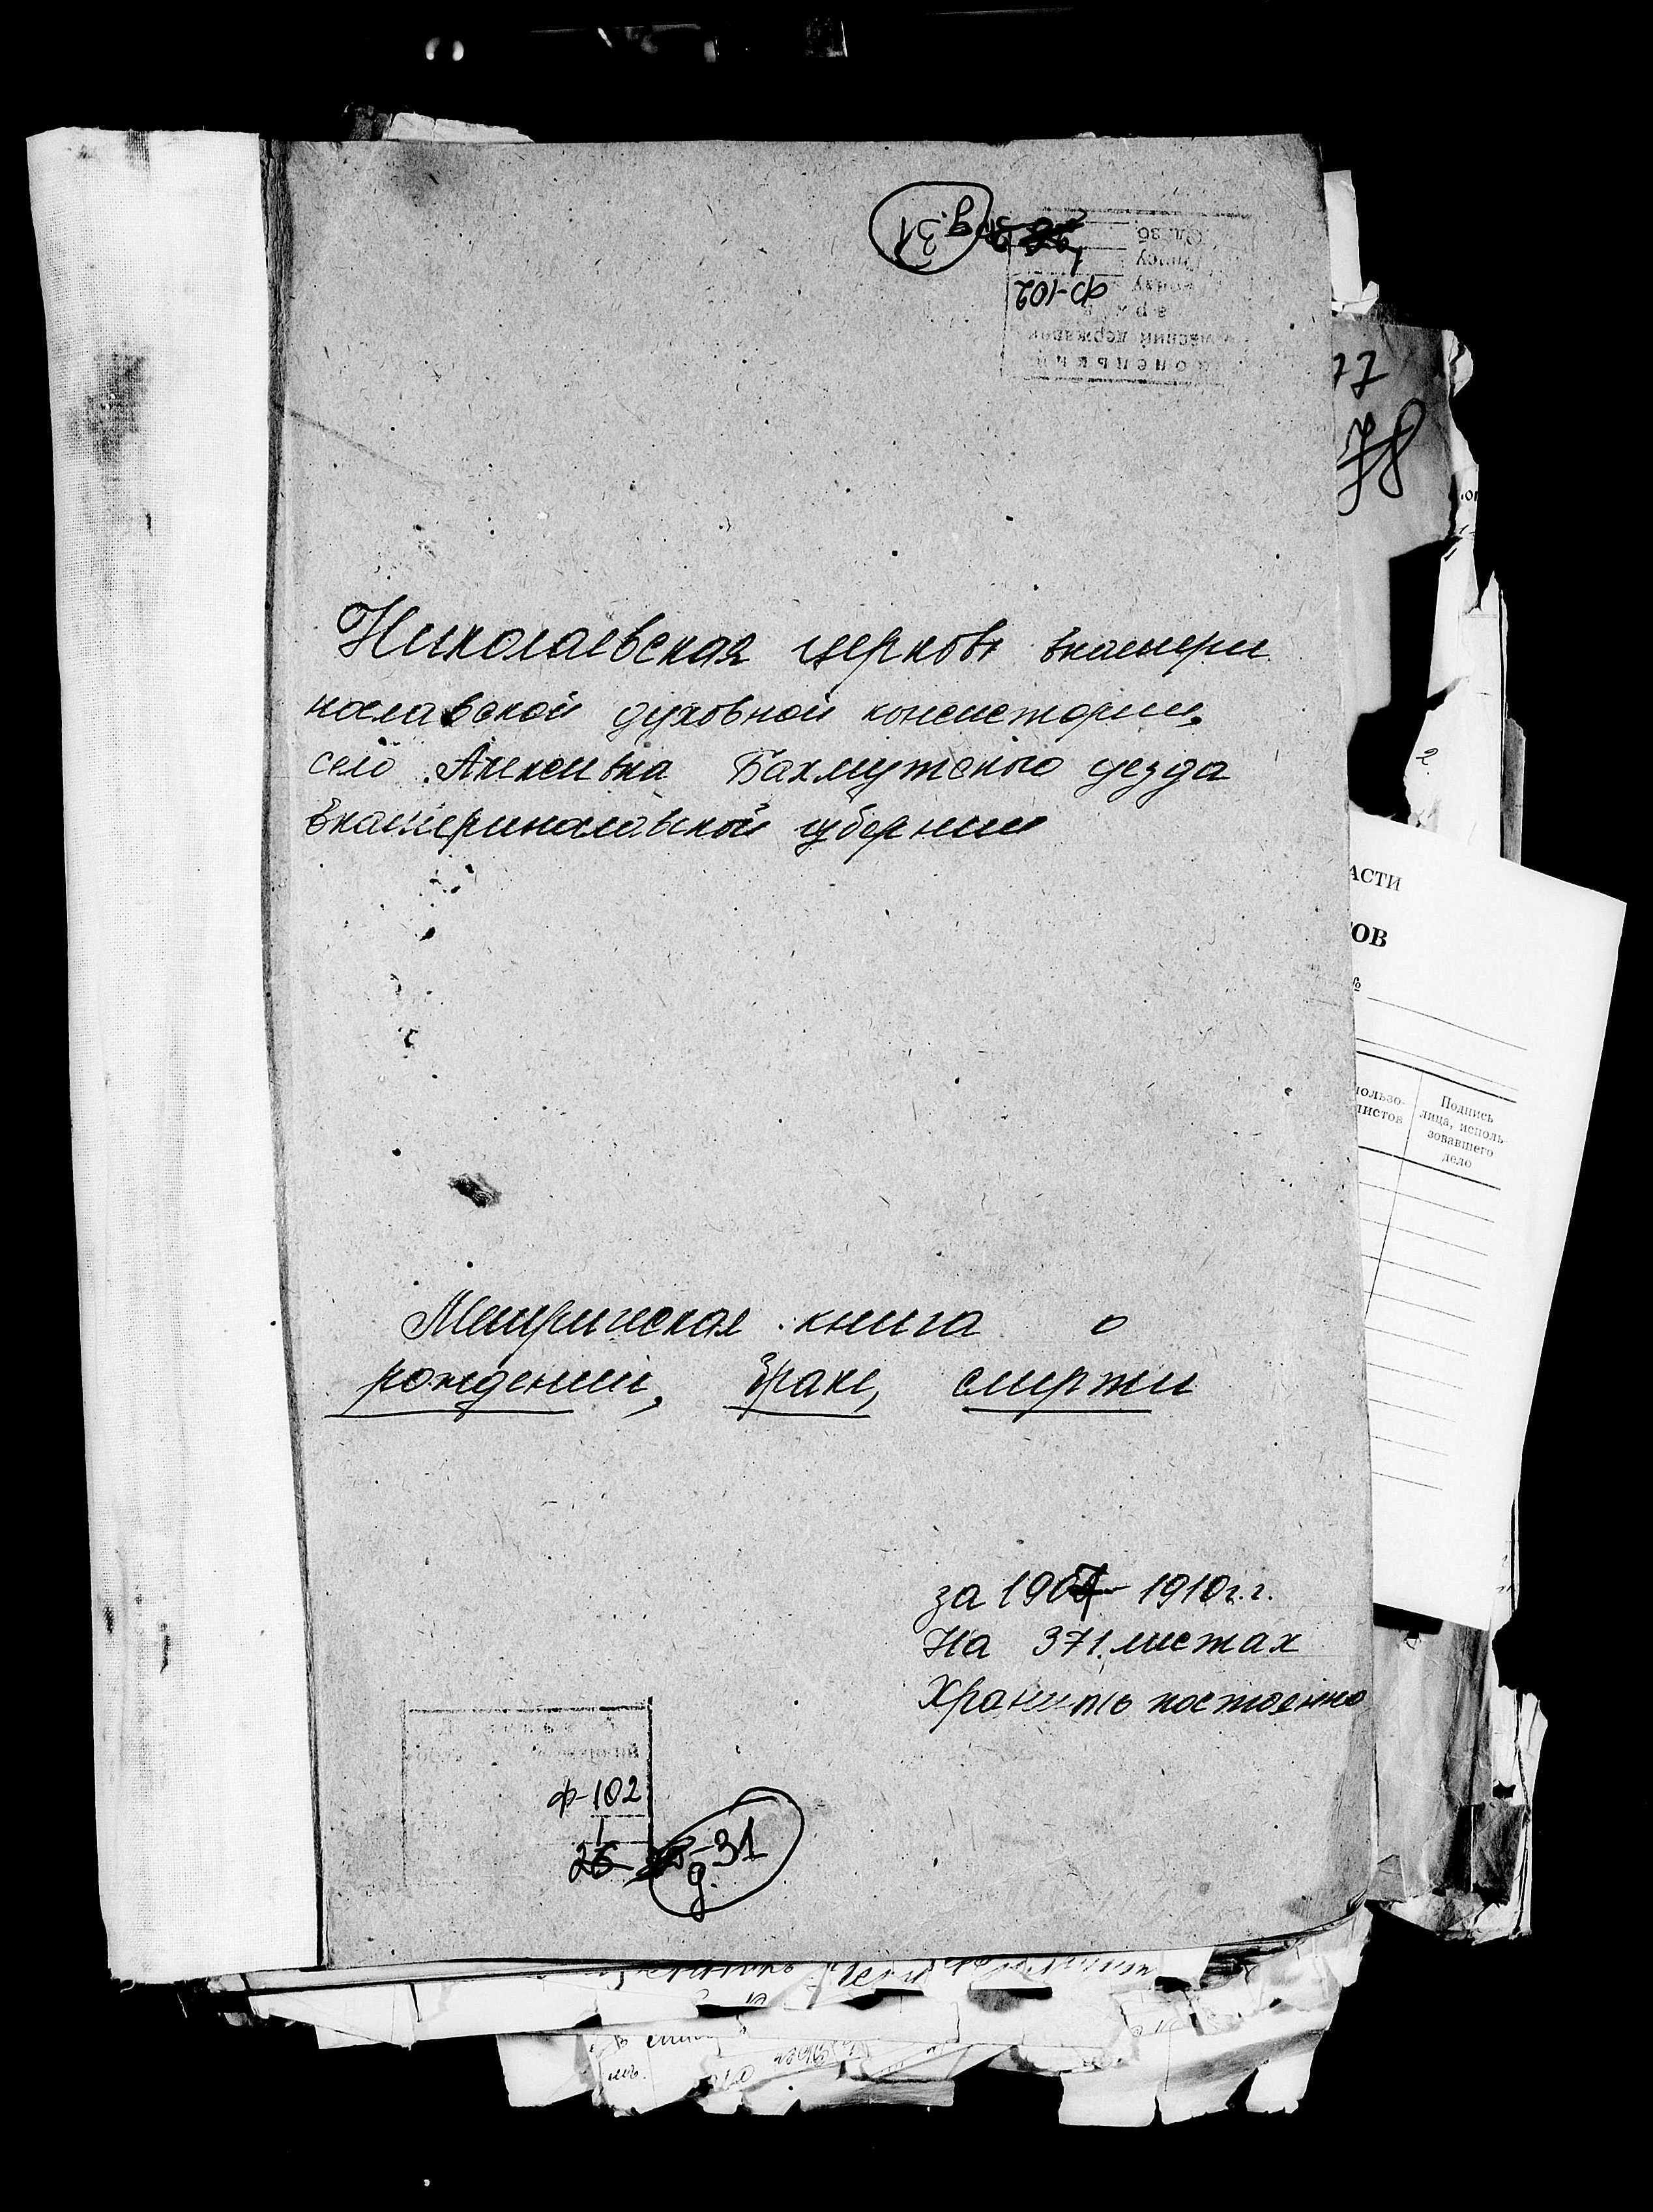 д. 31
ф-102
1
Николаевская церковь Екатери
нославской духовной консистории,
село Алексеевка Бахмутского уезда
Екатеринославской губернии
Метрическая книга о
рождении, браке, смерти
за 1907-1910г.г.
На 371 листах
Хранить постоянно
ф-102
1
26
д-31
77
АСТИ
ОВ
№
пользо-
листов
Подпись
лица, исполь-
зовавшего
дело